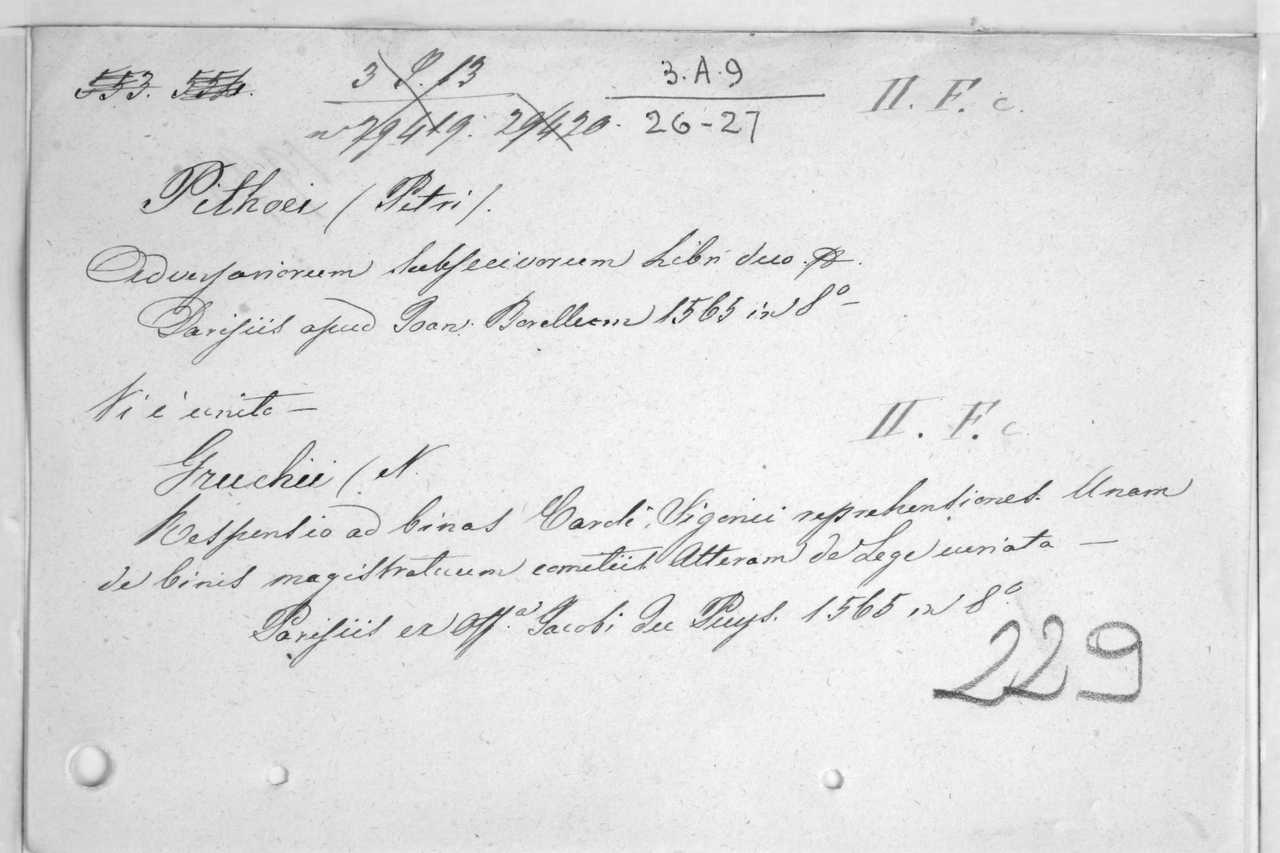 553. 554. 3 P. 13 3.A.9 II. F. c.
nⁱ 29419. 29420. 26-27
Pithoei (Petri).
Adversariorum subsecivorum Libri duo.
Parisiis apud Joan. Borellum 1565 in 8º-
Vi è unito-
II. F. c
Gruchii (N.
Responsio ad binas Caroli Sigonii reprehensiones. Unam
de binis magistratuum comitiis Alteram de Lege curiata-
Parisiis ex Offª Jacobi Du Puys. 1565 in 8.º
229